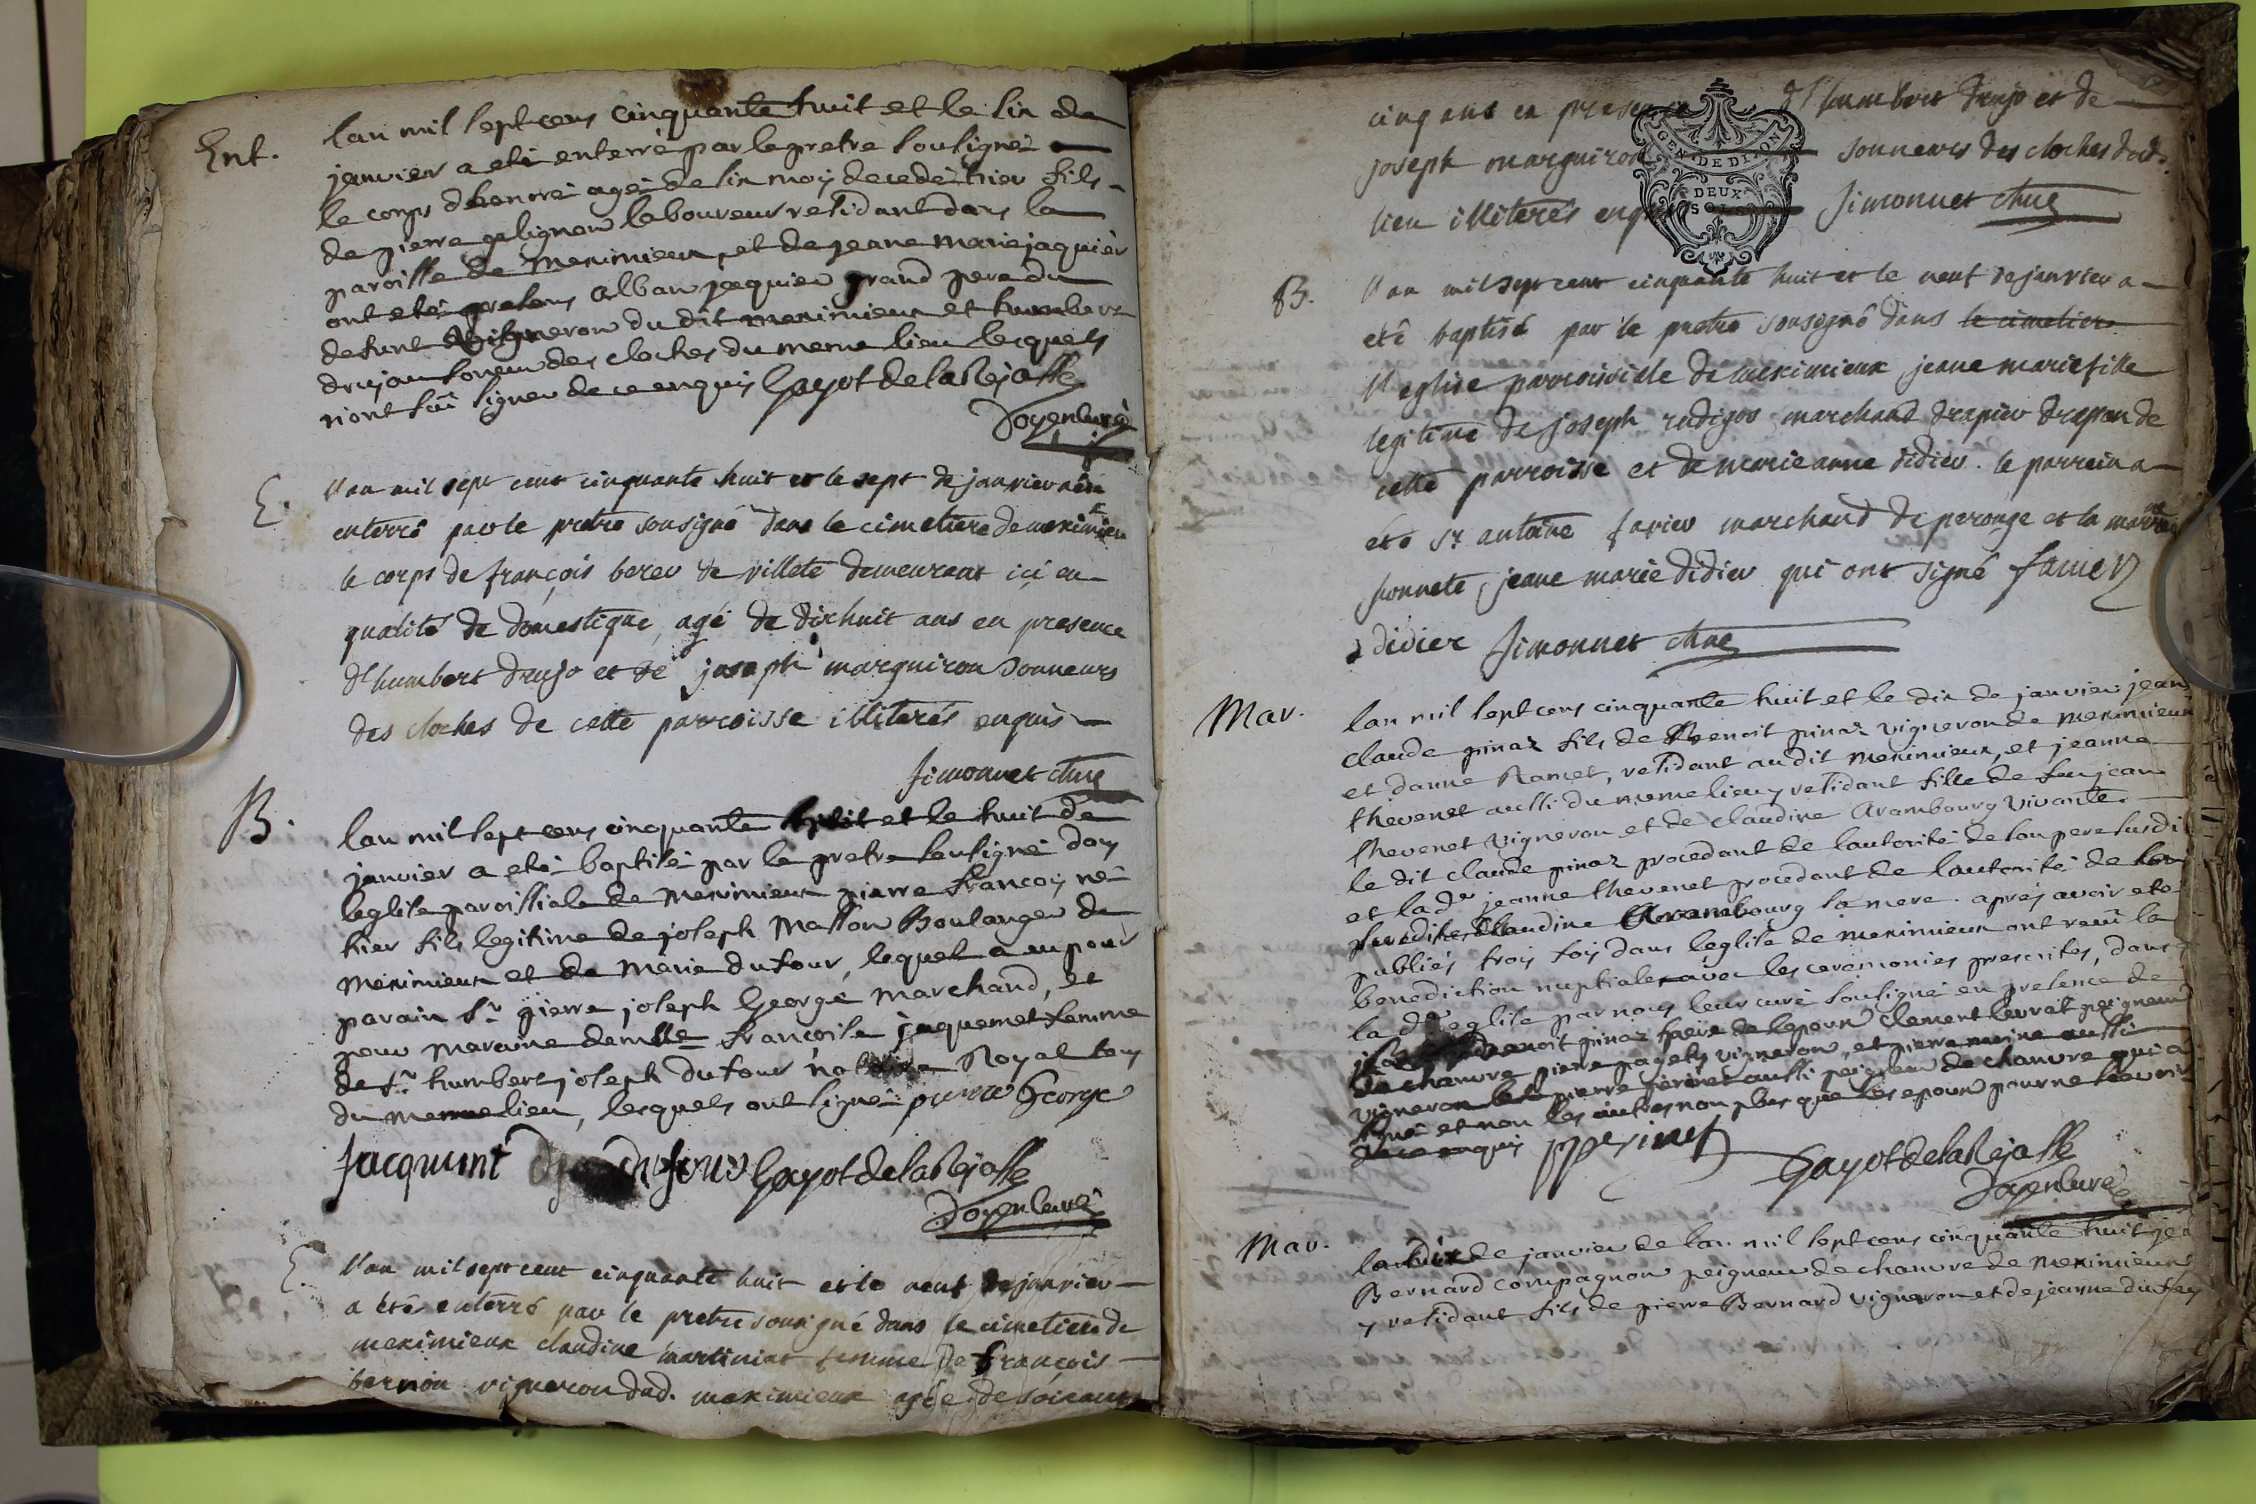 Ent.
lan mil sept cens cinquante huit et le six de
janvier a eté enterré par le pretre soussigné
le corps agé de six mois decedé hier fils
de pierre galignon laboureur residant dans la
paroisse de meximieux et de jeane marie jaquier
ont eté presens alban jaquier grand pere du
defunt vigneron du dit meximieux et humbert
drujon soneur des cloches du meme lieu lesquels
n'ont sçu signer de ce enquis Gayot de la Rejasse
Doyen curé
E.
l'an mil sept cent cinquante huit et le sept de janvier a été
enterré par le pretre sousigné dans le cimetiere de meximieu
le corps de françois berer de villete demeurant içi en
qualité de domestique, agé de dixhuit ans en presence
d'humbert drujo et de joseph marguiron sonneurs
des cloches de cette parroisse illiterés enquis
Simonnet chne
B.
lan mil sept cens cinquante huit et le huit de
janvier a eté baptisé par le pretre soussigné dans
leglise paroissiale de meximieux pierre françois né
hier fils legitime de joseph Masson Boulanger de
meximieux et de Marie dufour, lequel a eu pour
parain Sr pierre joseph George marchand, et
pour maraine demlle françoise jaquemet femme
de Sr humbert joseph dufour notaire Royal tous
du meme lieu, lesquels ont signé pierre George
Jacquemt dufour Gayot de la Rejasse
Doyen curé
E.
l'an mil sept cent cinquante huit et le neuf de janvier
a été enterré par le pretre sousigné dans le cimetiere de
meximieux claudine martiniat femme de françois
bernon vigneron dud. meximieux agée de soixante
cinq ans en presence d'humbert drujo et de
joseph marguiron sonneurs des cloches dud.
lieu illiterés enquis Simonnet chne
GEN. DE DIJON
DEUX
SOLS
B.
l'an mil sept cent cinquante huit et le neuf de janvier a
eté baptisé par le pretre sousigné dans le cimetiere
l'eglise parroissiale de meximieux jeane marie fille
legitime de joseph rudigos marchand drapier drapan de
cette parroisse et de marie anne didier. le parrein a
eté Sr antoine favier marchand de perouge et la marreine
honnete jeane marie didier qui ont signé favier
didier Simonnet chne
Mar.
lan mil sept cens cinquante huit et le dix de janvier jean
claude pinaz fils de Benoit pinaz vigneron de meximieux
et danne Ramet, residant au dit meximieux, et jeanne
thevenet aussi du meme lieu y residant fille de feu jean
thevenet vigneron et de claudine Arambourg vivante.
le dit claude pinaz procedant de lautorité de son pere susdi
et lade jeanne thevenet procedant de lautorité de
susdite claudine Arambourg sa mere. aprés avoir eté
publiés trois fois dans leglise de meximieux ont reçu la
benediction nuptiale avec les ceremonies prescrites, dans
la dte eglise par nous leur curé soussigné en presence de
benoit pinaz frere de lepoux clement levrat peigneur
de chanvre pierre pagets vigneron, et pierre moine aussi
vigneron et pierre perinet aussi peigneur de chanvre qui a
signé et non les autres non plus que les epoux pour ne sçavoir
de ce enquis pperinet
Gayot de la Rejasse
Doyen curé
Mar.
le dix de janvier de lan mil sept cens cinquante huit jea
Bernard compagnon peigneur de chanvre de meximieux
y residant fils de pierre Bernard vigneron et de jeanne